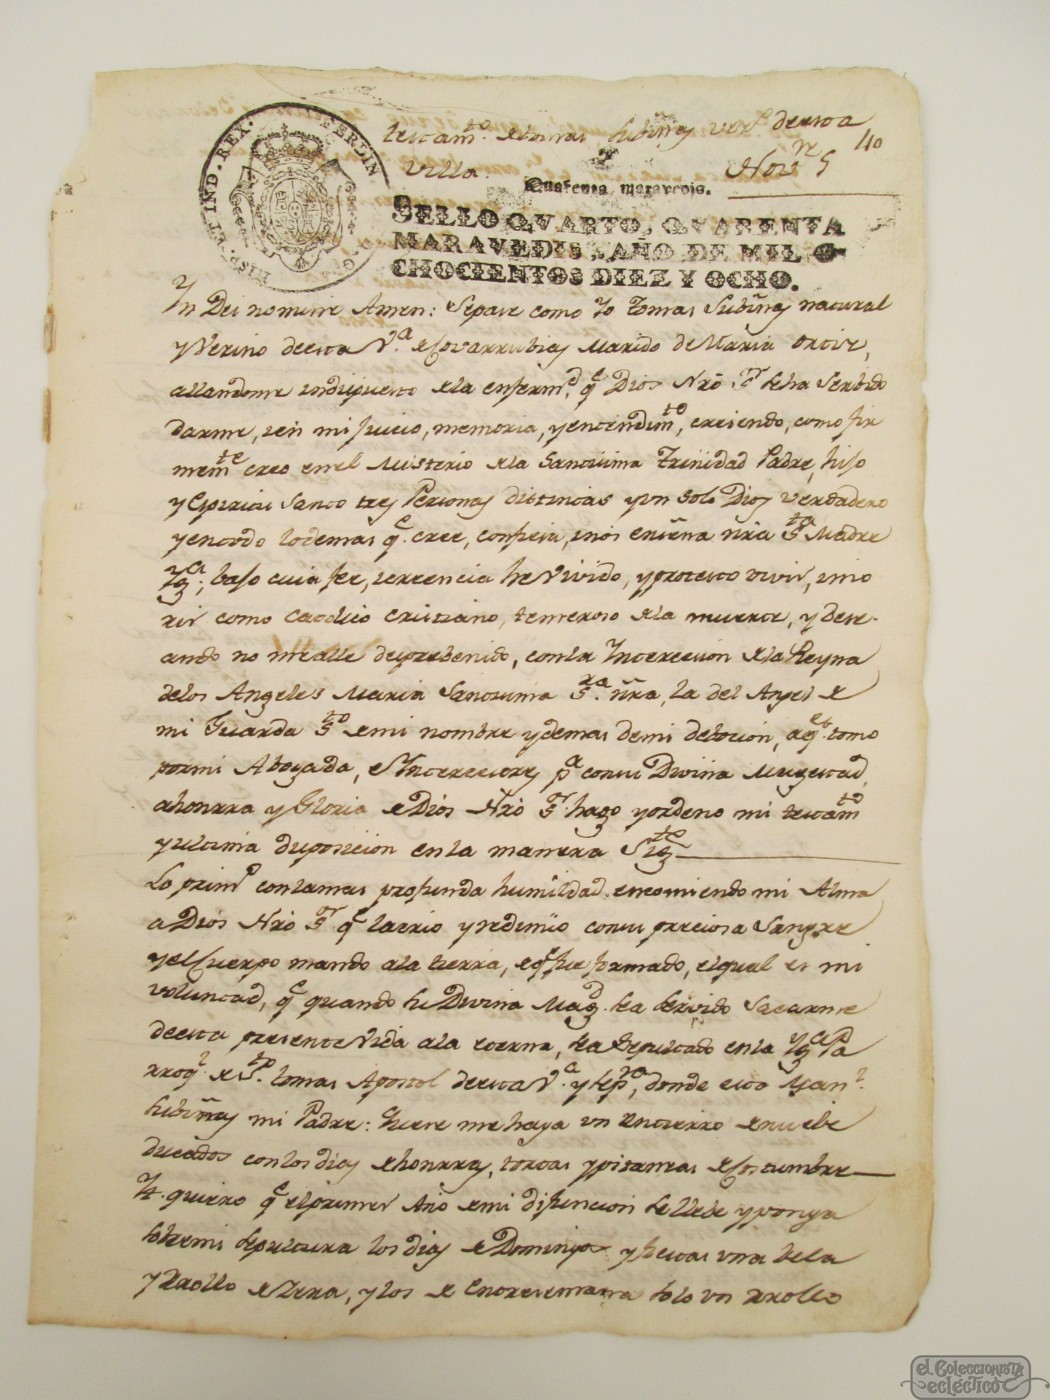 testam.to de tomas Subiñas vez.o de esta
villa.
Nov.re 5
40
HISP. ET IND. REX. FERDIN
Quarenta maravedis.
SELLO QVARTO, QVARENTA
MARAVEDIS, AÑO DE MIL O-
CHOCIENTOS DIEZ Y OCHO.
Yn Dei nomine Amen: Sepase como Yo tomas Subiñas natural
y Vecino de esta V.a de Covarrubias Marido de Maria Ortiz,
allandome indispuesto de la enferm.d q.e Dios Nrõ S.r se ha Serbido
darme, en mi Juicio, memoria, y entendim.to, creiendo, como fir
mem.te creo en el Misterio de la Santisima Trinidad Padre, hijo
y Espiritu Santo tres Personas distintas y un solo Dios verdadero
y en todo lo demas q.e cree, confiesa, y nos enseña nrã S.ta Madre
Yg.a; bajo cuia fee, y creencia he Vivido, y protesto vivir, y mo
rir como catolico cristiano, temeroso de la muerte, y dese-
ando no me alle desprebenido, con la Yntercesion de la Reyna
de los Angeles Maria Santisima S.ra ñra, la del Angel de
mi Guarda S.to de mi nombre y demas de mi debocion, a q.es tomo
por mi Abogada, e Yntercesores p.a con su Divina Magestad,
a honrra y Gloria de Dios Ñrõ S.r hago y ordeno mi testam.to
y ultima disposicion en la manera Sig.te
Lo prim.o con la mas profunda humildad encomiendo mi Alma
a Dios Nrõ S.r q.e la crio y redimio con su preciosa Sangre
y el Cuerpo mando a la tierra, de q.e fue formado, el qual es mi
voluntad, q.e quando su Divina Mag.d sea servido Sacarme
de esta presente Vida a la eterna, sea Sepultado en la Yg.a Pa
rroq.l de S.to tomas Apostol de esta V.a y sep.ra, donde esta Man.l
Subiñas mi Padre: Quiere me haga un Entierro de nuebe
ducados con los dias de honrras, tortas y pitanzas de Costumbre
Yt. quiero q.e el primer Año de mi difuncion se llebe y ponga
sobre mi sepultura los dias de Domingo y fiestas una bela
y Rrollo de Zera, y los de Entresemana solo un rrollo
el Coleccionista
ecléctico